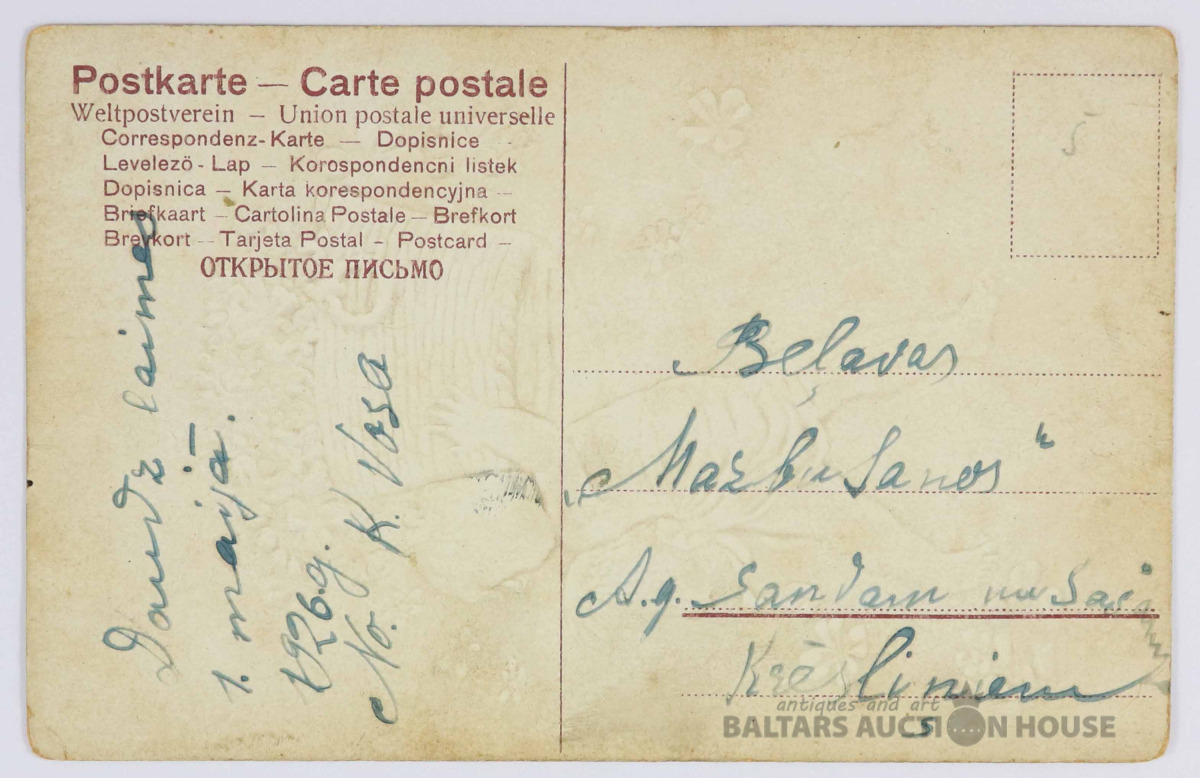 Postkarte — Carte postale
Weltpostverein — Union postale universelle
Correspondenz-Karte — Dopisnice
Levelező-Lap — Korospondencni listek
Dopisnica — Karta korespondencyjna —
Briefkaart — Cartolina Postale — Brefkort
Brevkort — Tarjeta Postal — Postcard —
ОТКРЫТОЕ ПИСЬМО
Daudz laimes
1. maijā.
1926.g.
No. K. Vosa
5
Bēlavas
A.g.
Krēsliniem
antiques and art
BALTARS AUCTION HOUSE